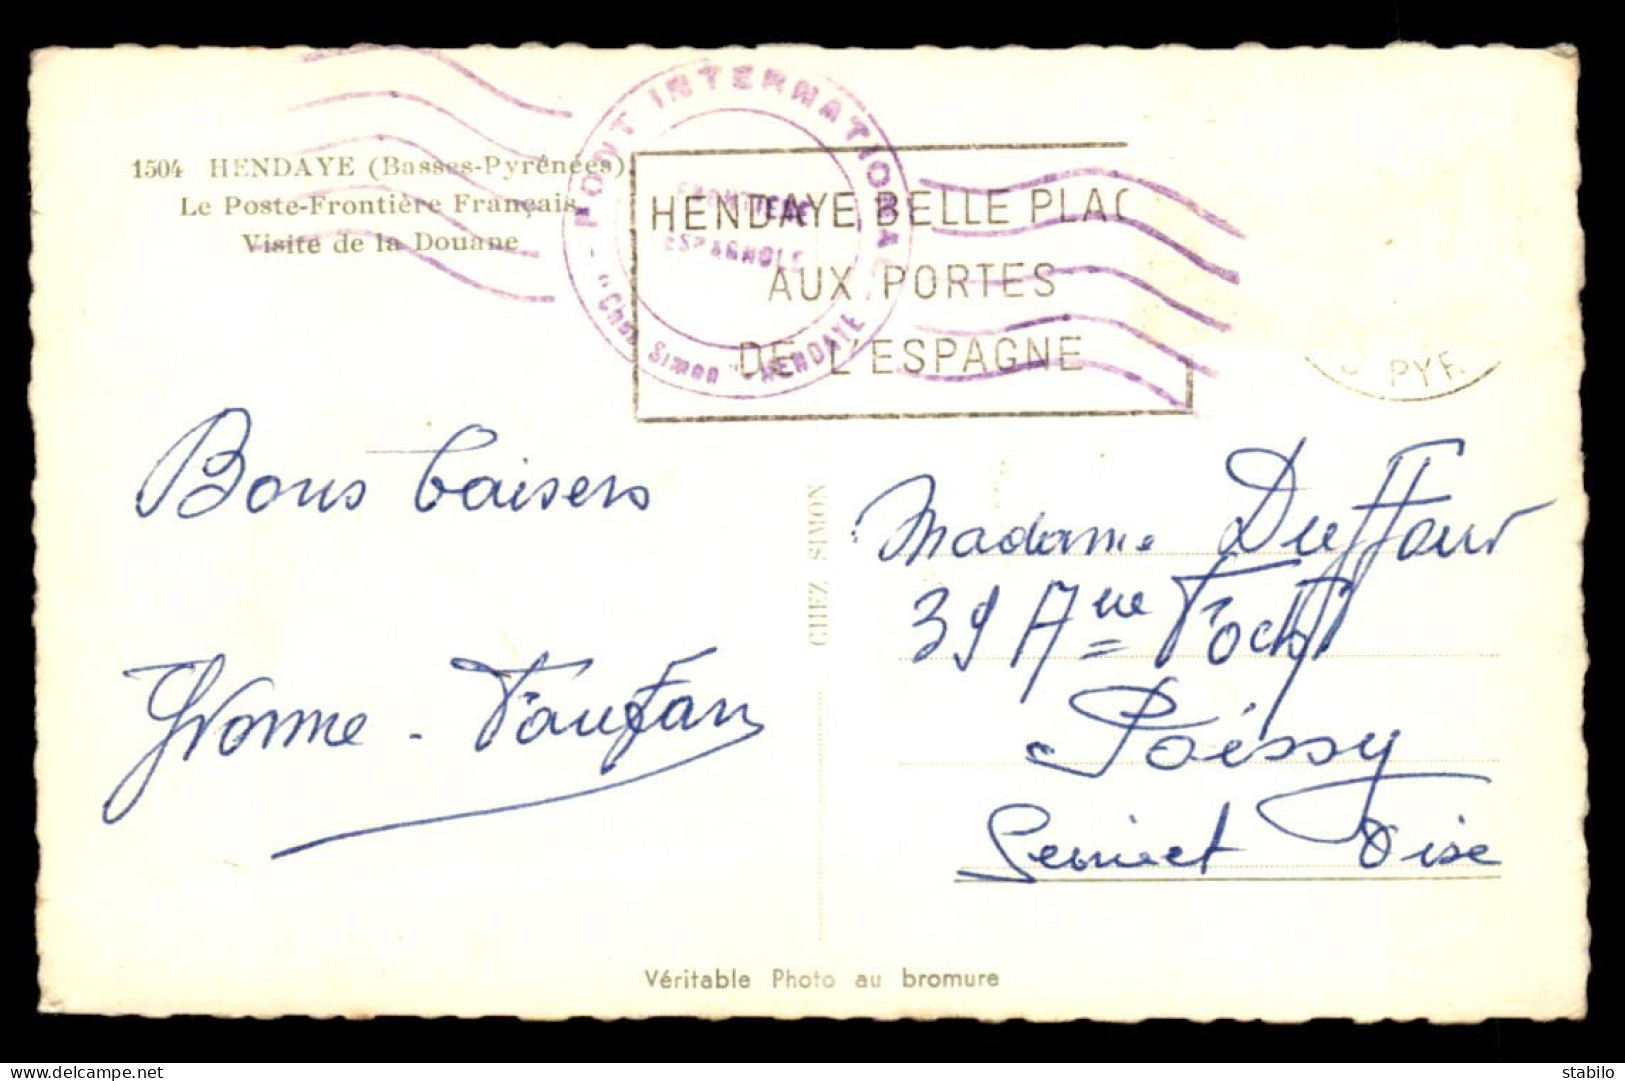 1504 HENDAYE (Basses-Pyrénées)
Le Poste-Frontière Français
Visite de la Douane
- PONT INTERNATIONAL -
FRONTIERE
ESPAGNOLE
"Chez Simon" - HENDAYE
HENDAYE BELLE PLAG
AUX PORTES
DE L'ESPAGNE
PYR.
Bons baisers
Yvonne -
CHEZ SIMON
Madame Duffour
39 Aue Foch
Poissy
Seine et Oise
Véritable Photo au bromure
stabilo